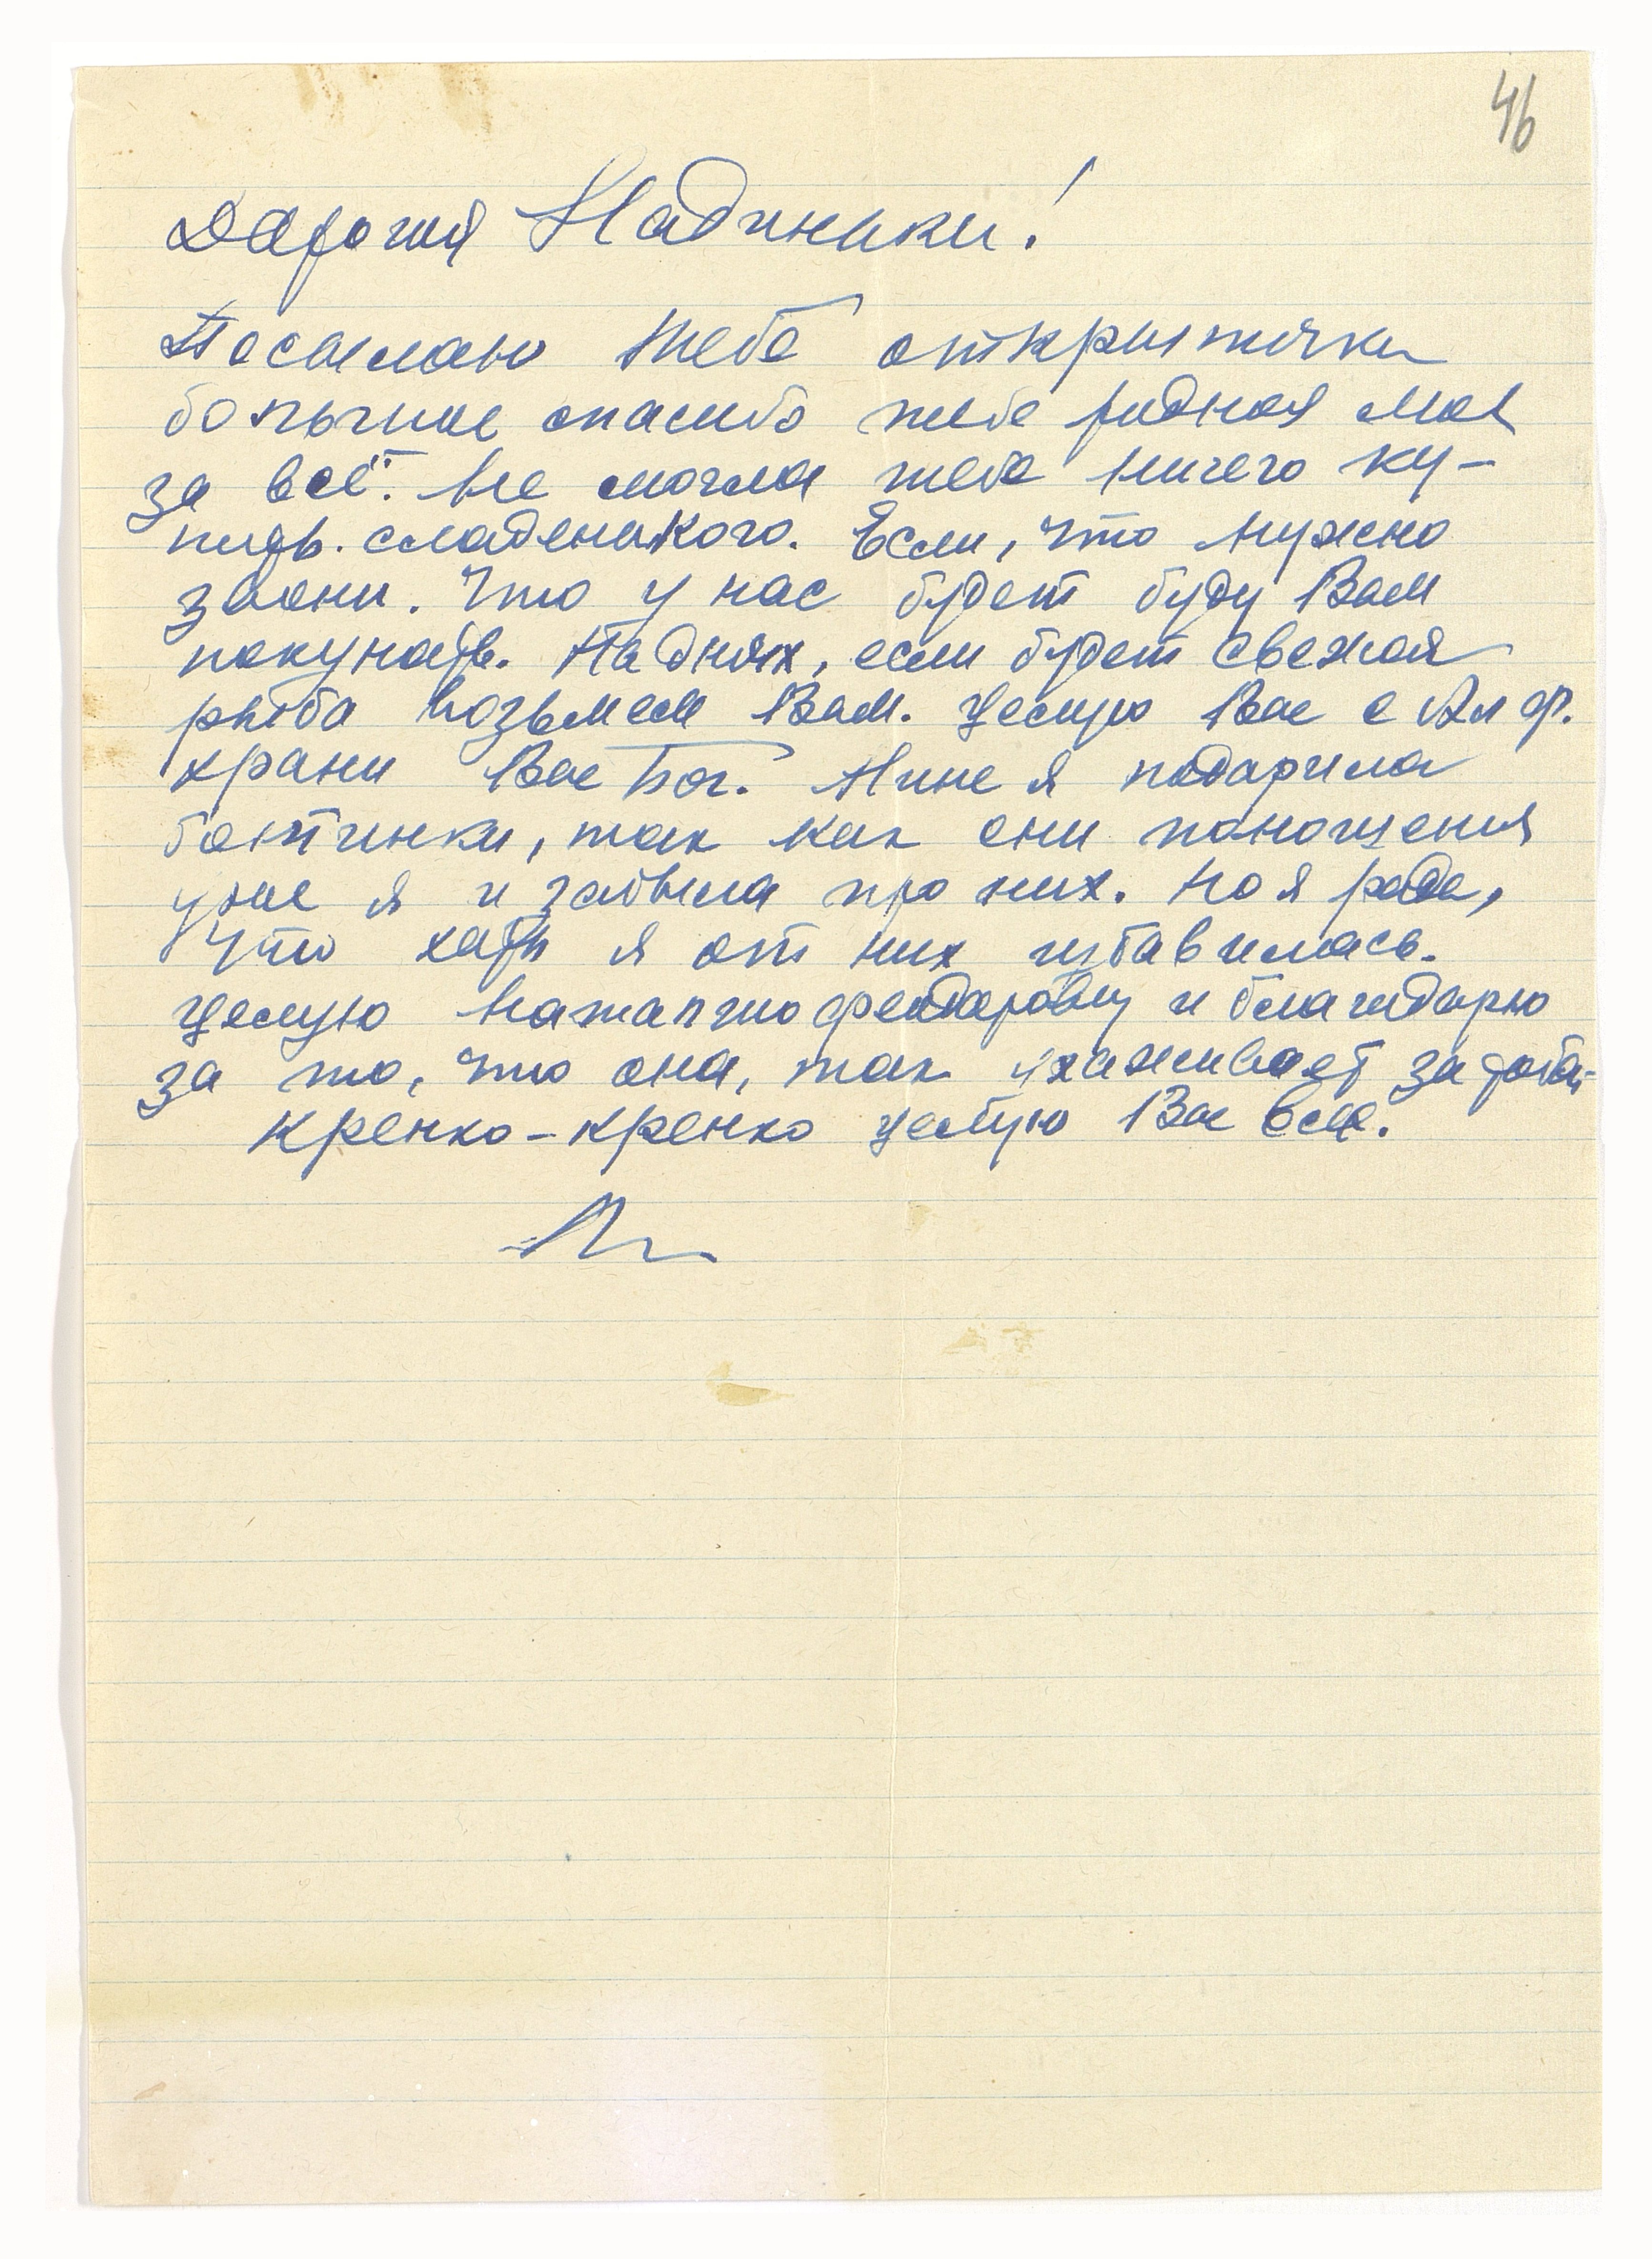 46
Дарогия Надинька!
Посылаю тебе открыточки
большое спасибо тебе родная моя
за всё. Не смогла тебе ничего ку-
пить. сладенького. Если, что нужно
звони. Что у нас будет буду Вам
покупать. На днях, если будет свежая
рыба возьмем Вам. Целую Вас с Ал Ф.
храни Вас Бог. Нине я подарила
ботинки, так как они поношения
уже я и забыла про них. Но я рада,
что хать я от них избавилась.
Целую Наталию Феодаровну и благодарю
за то, что она, так ухаживает за тобой
Крепко-крепко целую Вас всех.